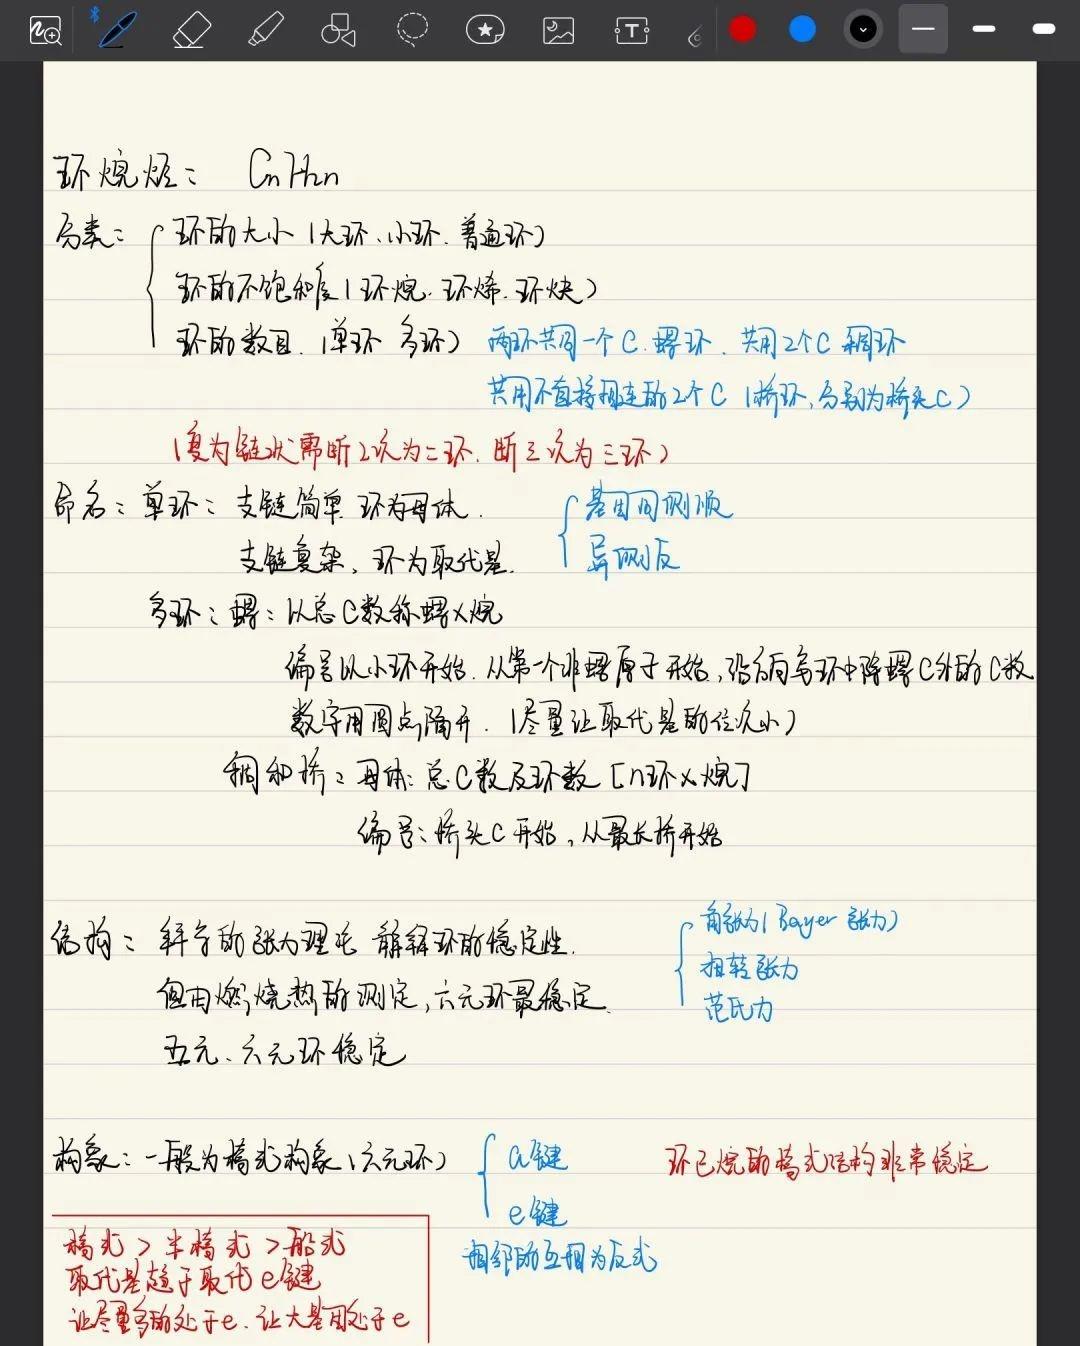 环烷烃： CnH2n
分类： 环的大小（大环、小环、普通环）
环的不饱和度（环烷、环烯、环炔）
环的数目.（单环 多环） 两环共同一个C.螺环. 共用2个C 稠环
共用不直接相连的2个C（桥环,分别为桥头C）
（变为链状需断2次为二环.断三次为三环）
命名：单环：支链简单 环为母体. 基团同侧顺
支链复杂、环为取代基. 异侧反
多环：螺：以总C数称螺X烷
编号以小环开始.从第一个非螺原子开始, 每环中除螺C外的C数
数字用圆点隔开.（尽量让取代基的位次小）
稠和桥：母体:总C数及环数[n环X烷]
编号:桥头C开始,从最长桥开始
结构： 的张力理论 解释环的稳定性. 角张力（Bayer张力）
但由燃烧热的测定,六元环最稳定. 扭转张力
范氏力
五元、六元环稳定
构象：一般为椅式构象（六元环） a键 环己烷的椅式结构非常稳定
e键
相邻的互相为反式
椅式>半椅式>船式
取代基趋于取代e键
让尽量多的处于e.让大基团处于e
T